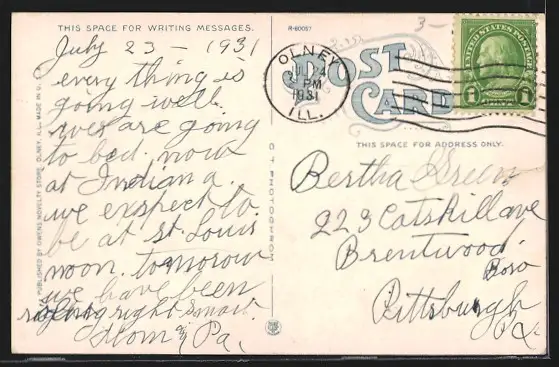 THIS SPACE FOR WRITING MESSAGES.
July 23 - 1931
every thing is
going well.
are going
to bed. now
at Indiana.
we exspect to
be at St. Louis
noon. tomorow
we have been
right smart.
Mom & Pa.
PUBLISHED BY OWENS NOVELTY STORE, OLNEY, ILL. MADE IN U.
R-60057
3-
POST
CARD
OLNEY
JUL 24
PM
1931
ILL.
UNITED STATES POSTAGE
1 1
THIS SPACE FOR ADDRESS ONLY.
Bertha Green
223 Catskill ave
Brentwood.
Boro
Pittsburgh
Pa.